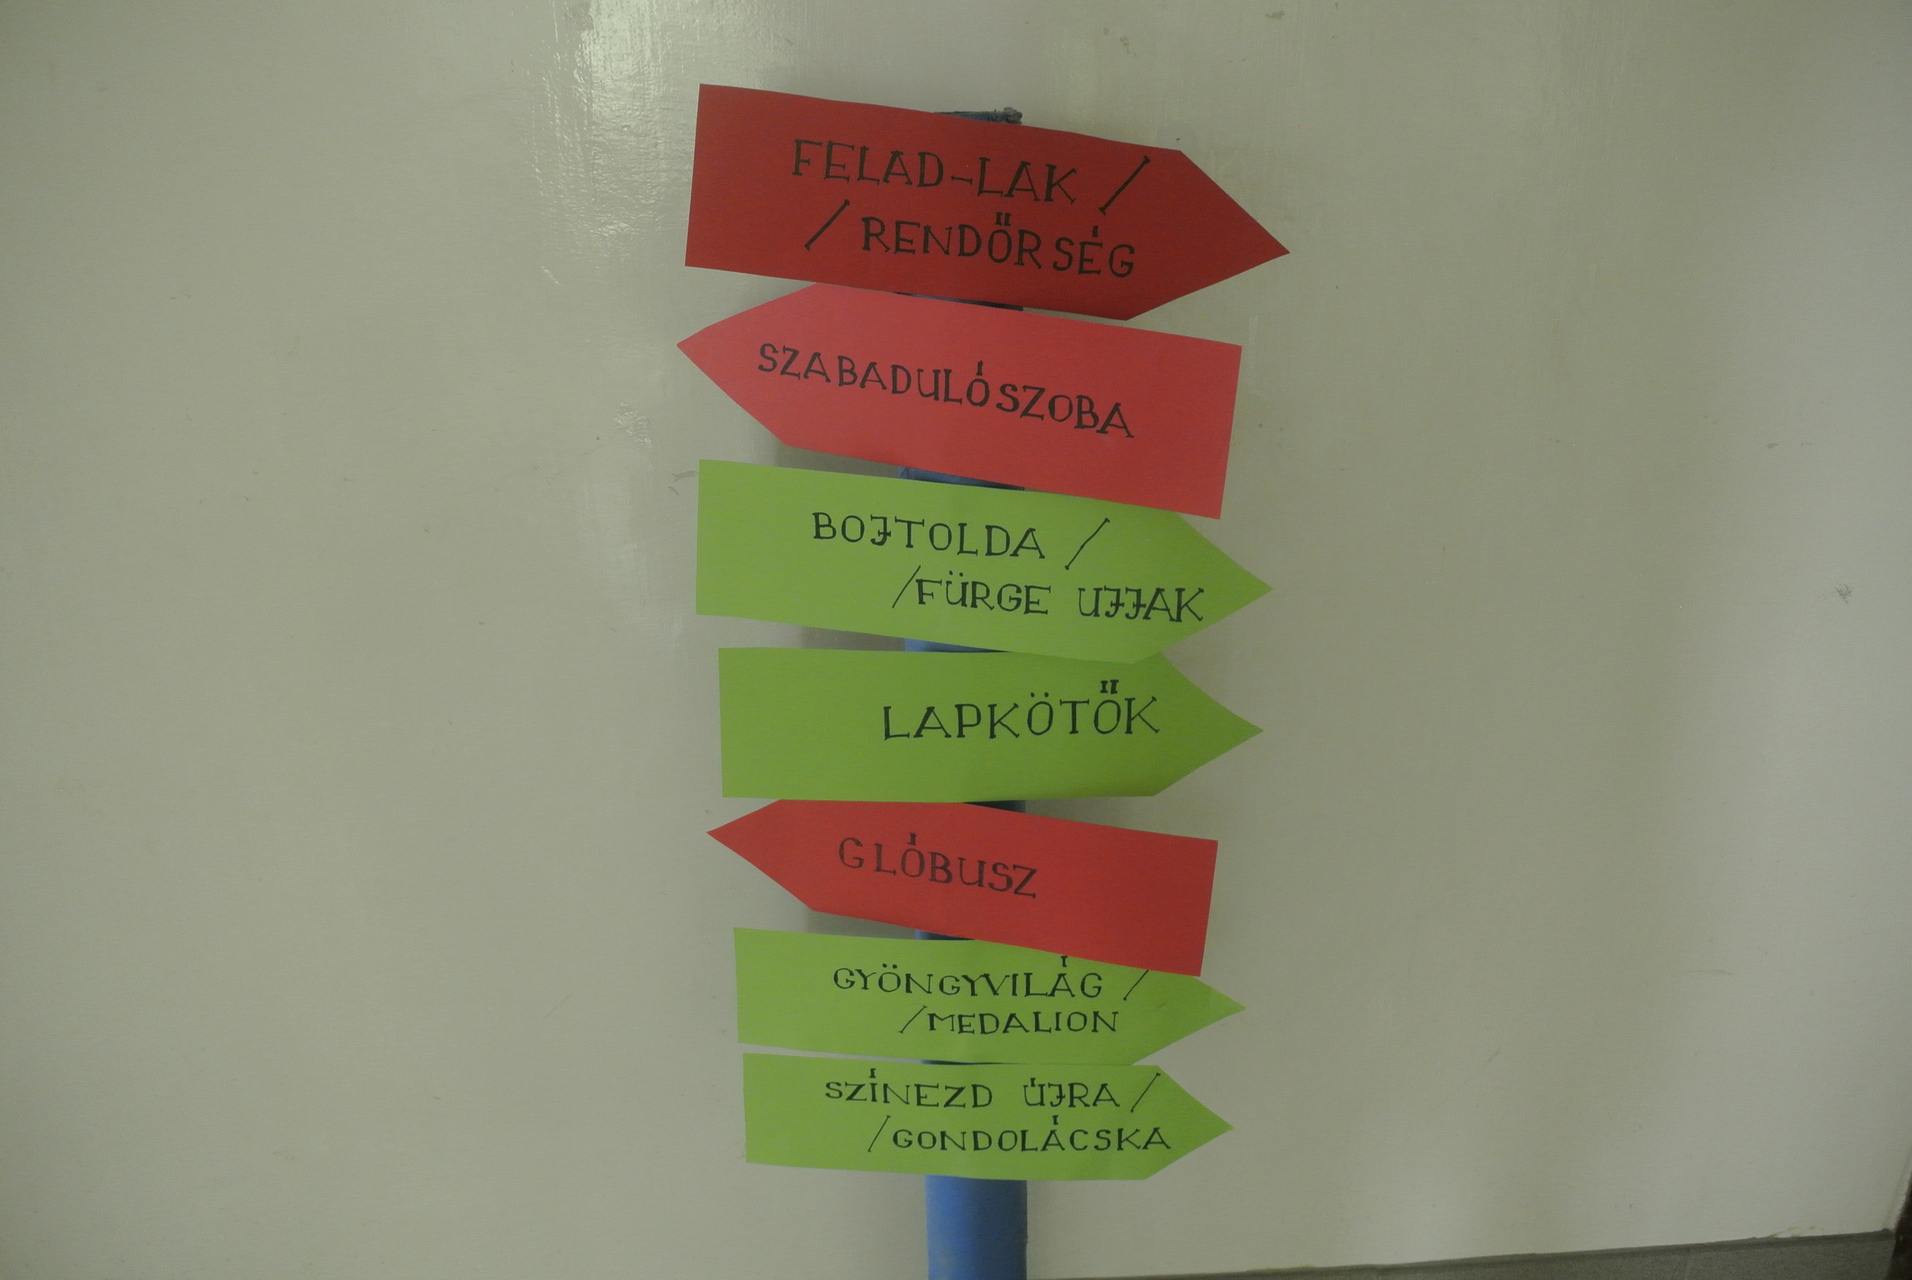 FELAD-LAK /
/ RENDŐRSÉG
SZABADULÓSZOBA
BOJTOLDA /
/FÜRGE UJJAK
LAPKÖTŐK
GLÓBUSZ
GYÖNGYVILÁG /
/MEDALION
SZÍNEZD ÚJRA /
/GONDOLÁCSKA